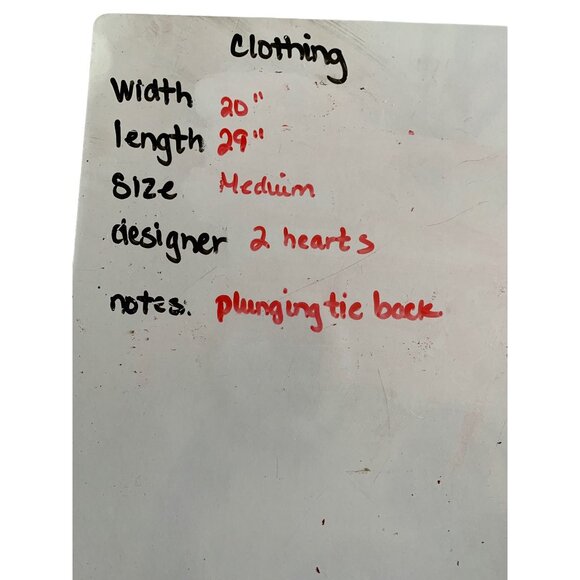 Clothing
Width 20"
length 29"
Size Medium
designer 2 hearts
notes. plunging tie back